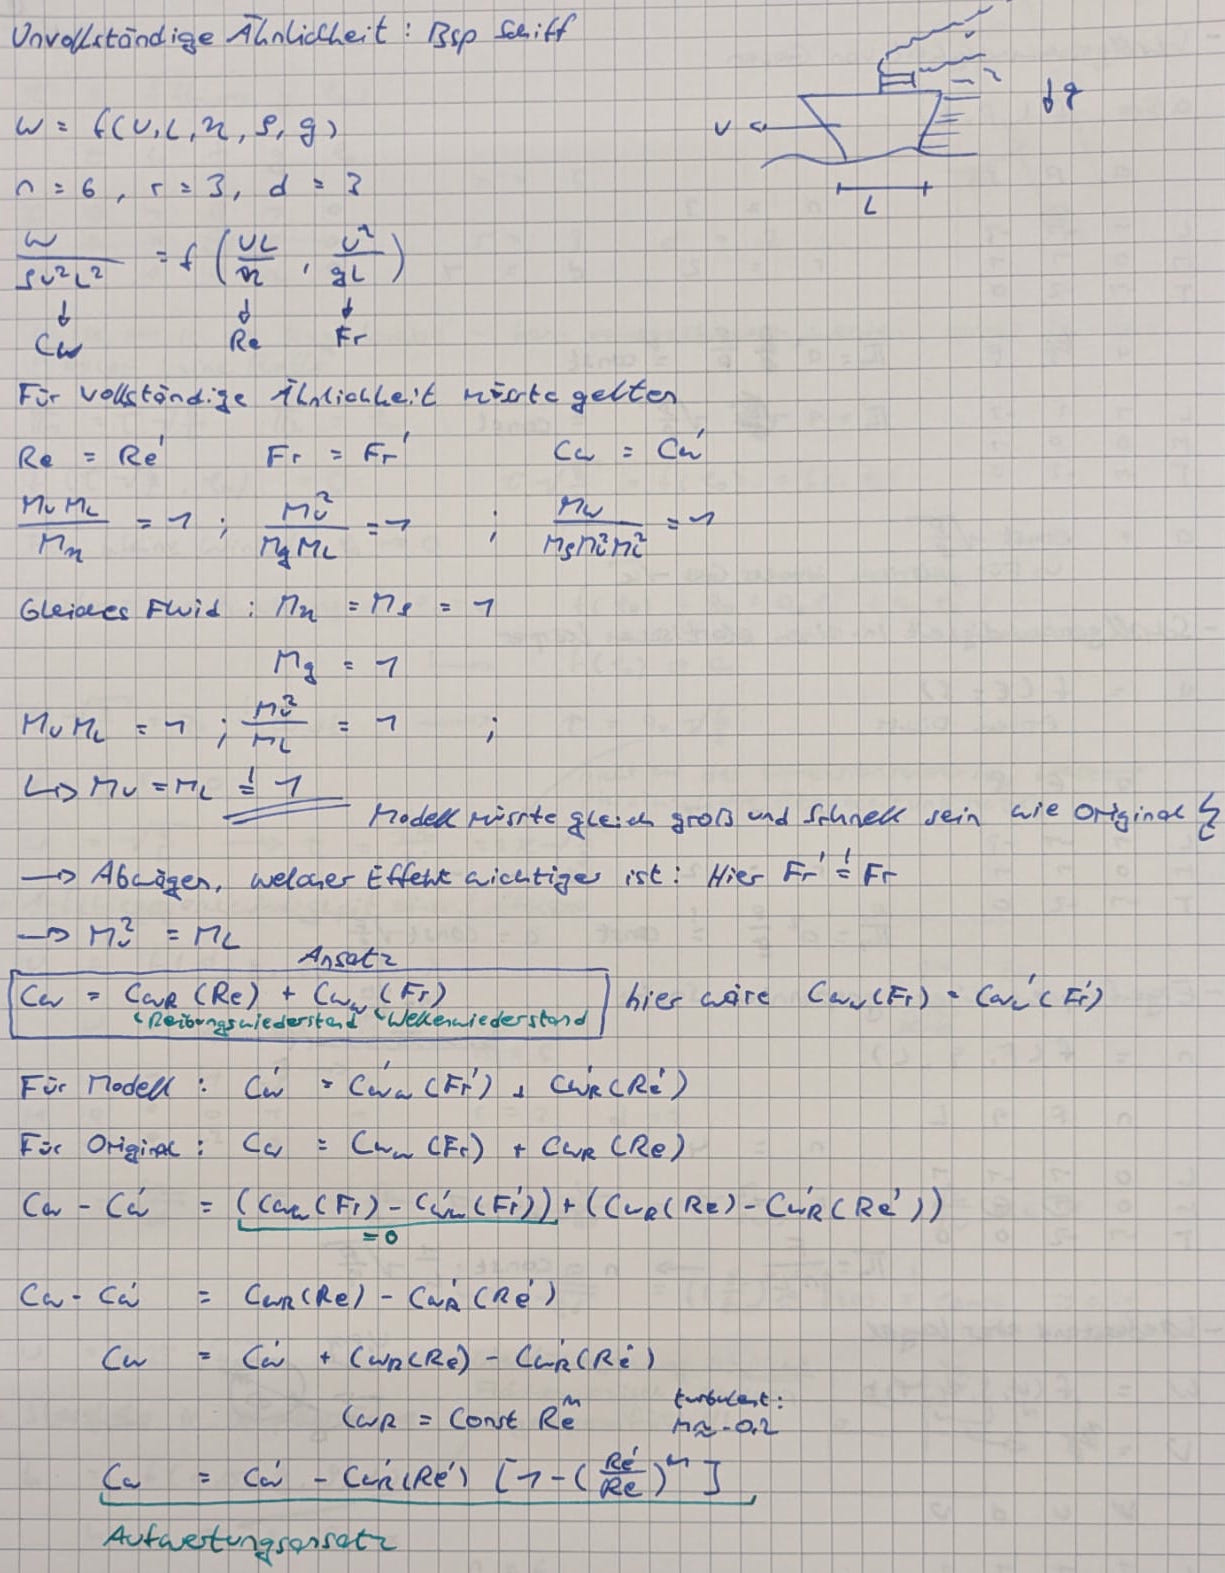 Unvollständige Ähnlichkeit : Bsp Schiff
U
↓g
L
W = f(U, L, ϰ, ρ, g)
n = 6 , r = 3, d = 3
W/(ρU²L²) = f (UL/ϰ , U²/gL)
↓ ↓ ↓
Cw Re Fr
Für vollständige Ähnlichkeit müsste gelten
Re = Re' Fr = Fr' Cw = Cw'
MU ML/Mϰ = 1 ; MU²/(Mg ML) = 1 ; MW/(Mρ MU² ML²) = 1
Gleiches Fluid : Mϰ = Mρ = 1
Mg = 1
MU ML = 1 ; MU²/ML = 1 ;
↳ MU = ML =! 1
Modell müsste gleich groß und schnell sein wie Original ↯
→ Abwägen, welcher Effekt wichtiger ist : Hier Fr' =! Fr
→ MU² = ML
Ansatz
Cw = CwR (Re) + Cww (Fr) hier wäre Cww (Fr) = Cww' (Fr')
Reibungswiederstand Wellenwiederstand
Für Modell : Cw' = Cww' (Fr') + CwR' (Re')
Für Original : Cw = Cww (Fr) + CwR (Re)
Cw - Cw' = (Cww (Fr) - Cww' (Fr')) + (CwR (Re) - CwR' (Re'))
= 0
Cw - Cw' = CwR (Re) - CwR' (Re')
Cw = Cw' + CwR (Re) - CwR' (Re')
CwR = Const Re^m turbulent :
m ≈ -0,2
Cw = Cw' - CwR' (Re') [1 - (Re'/Re)^-m]
Aufwertungsansatz